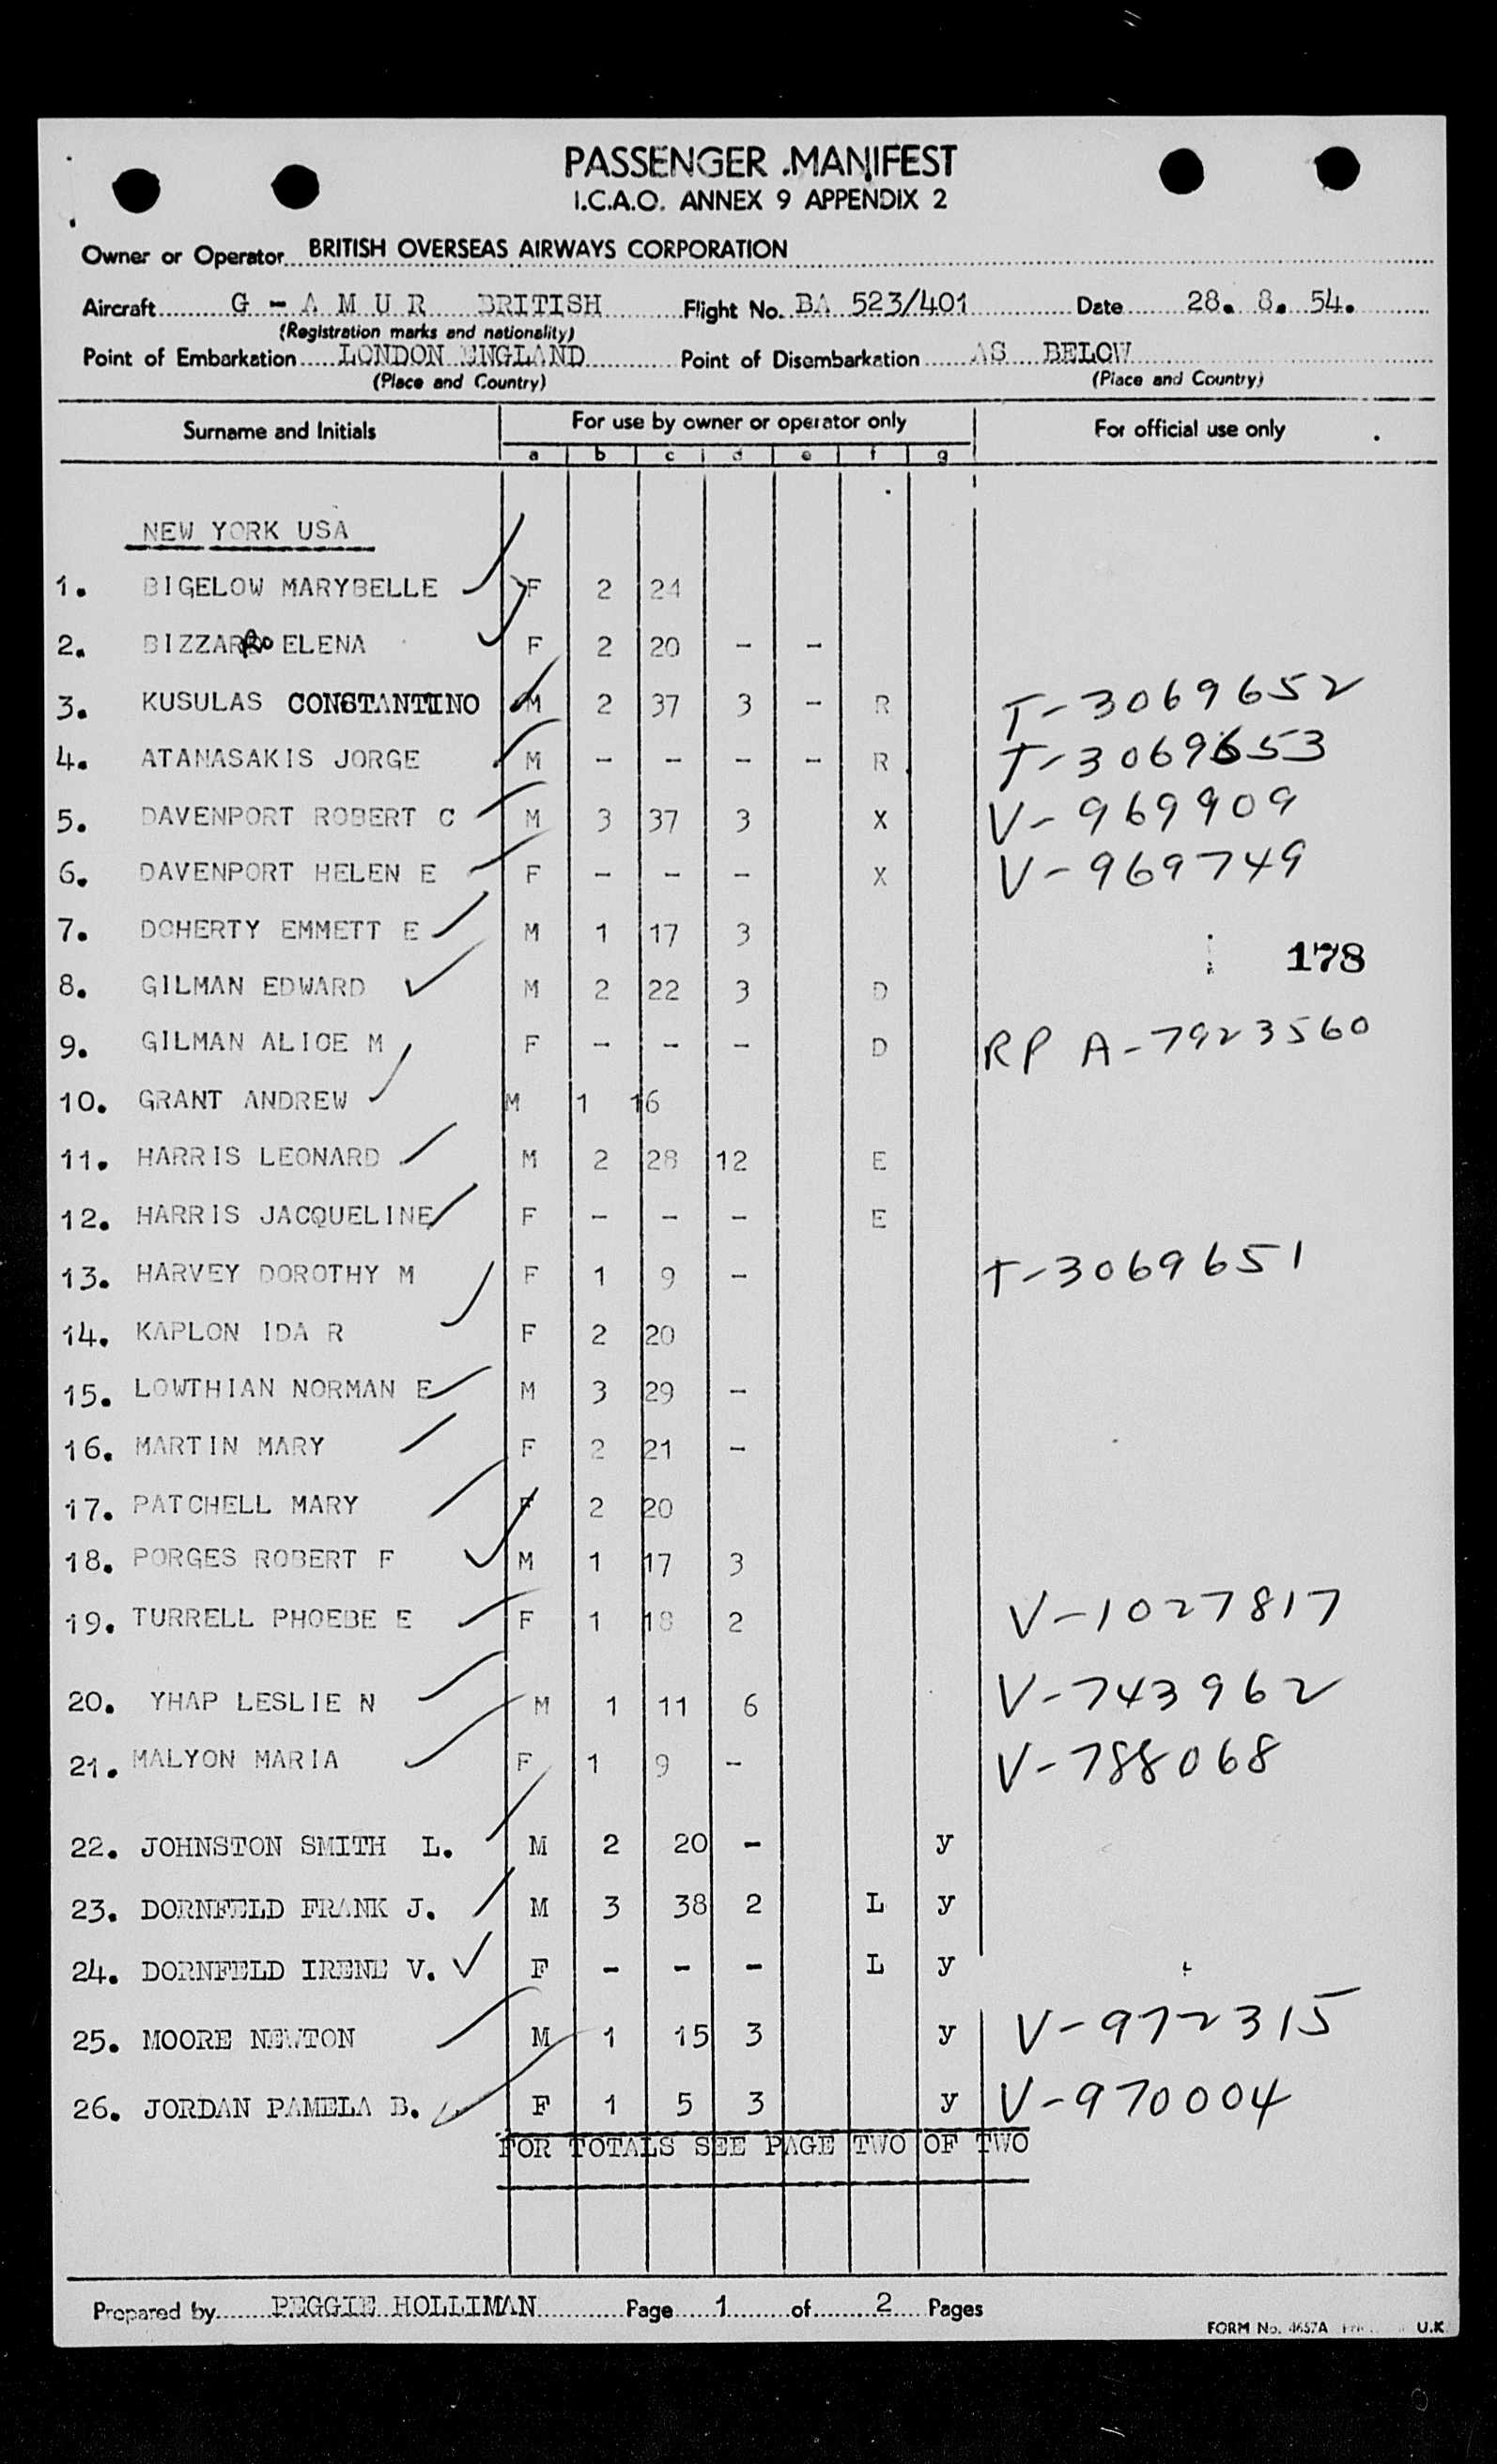 PASSENGER MANIFEST
I.C.A.O. ANNEX 9 APPENDIX 2
Owner or Operator BRITISH OVERSEAS AIRWAYS CORPORATION
Aircraft G - A M U R BRITISH Flight No. BA 523/401 Date 28. 8. 54.
(Registration marks and nationality)
Point of Embarkation LONDON ENGLAND Point of Disembarkation AS BELOW
(Place and Country) (Place and Country)
Surname and Initials For use by owner or operator only For official use only
a b c d e f g
NEW YORK USA
1. BIGELOW MARYBELLE F 2 24
2. BIZZARRO ELENA F 2 20 - -
3. KUSULAS CONSTANTINO M 2 37 3 - R T-3069652
4. ATANASAKIS JORGE M - - - - R T-3069653
5. DAVENPORT ROBERT C M 3 37 3 X V-969909
6. DAVENPORT HELEN E F - - - X V-969749
7. DOHERTY EMMETT E M 1 17 3
178
8. GILMAN EDWARD M 2 22 3 D
9. GILMAN ALICE M F - - - D RP A-7923560
10. GRANT ANDREW M 1 16
11. HARRIS LEONARD M 2 28 12 E
12. HARRIS JACQUELINE F - - - E
13. HARVEY DOROTHY M F 1 9 - T-3069651
14. KAPLON IDA R F 2 20
15. LOWTHIAN NORMAN E M 3 29 -
16. MARTIN MARY F 2 21 -
17. PATCHELL MARY F 2 20
18. PORGES ROBERT F M 1 17 3
19. TURRELL PHOEBE E F 1 18 2 V-1027817
20. YHAP LESLIE N M 1 11 6 V-743962
21. MALYON MARIA F 1 9 - V-788068
22. JOHNSTON SMITH L. M 2 20 - y
23. DORNFELD FRANK J. M 3 38 2 L y
24. DORNFELD IRENE V. F - - - L y
25. MOORE NEWTON M 1 15 3 y V-972315
26. JORDAN PAMELA B. F 1 5 3 y V-970004
FOR TOTALS SEE PAGE TWO OF TWO
Prepared by PEGGIE HOLLIMAN Page 1 of 2 Pages
FORM No. 4657A U.K